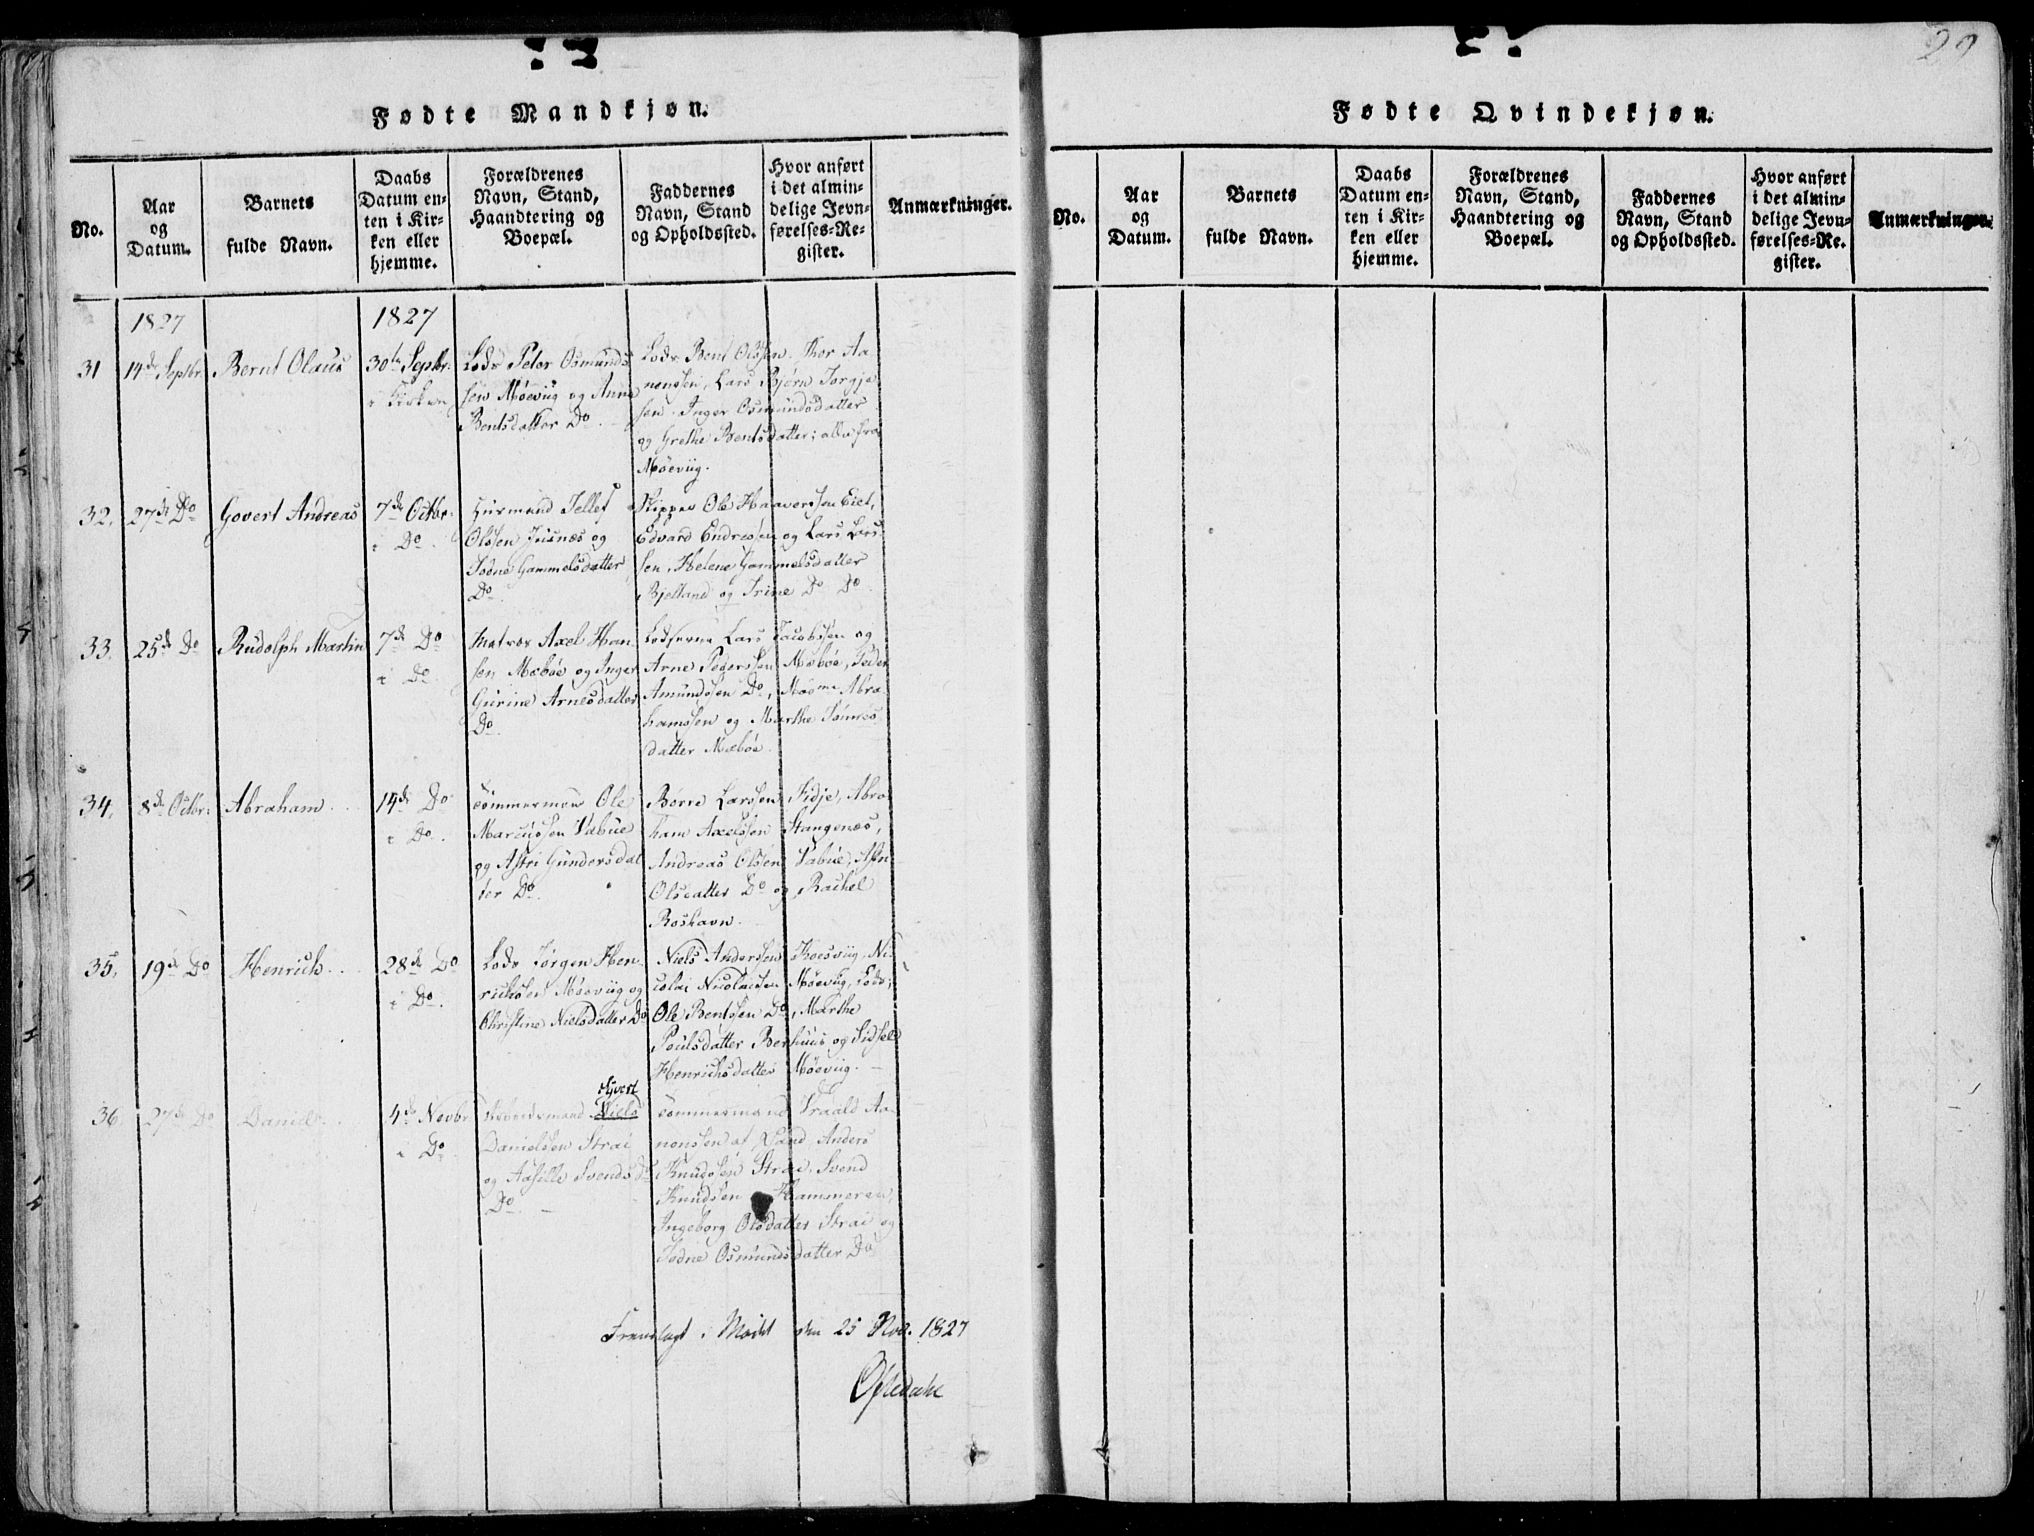 29
Fødte Mandkjøn.
No.
Aar
og
Datum.
Barnets
fulde Navn.
Daabs
Datum en-
ten i Kir-
ken eller
hjemme.
Forældrenes
Navn, Stand,
Haandtering og
Boepæl.
Faddernes
Navn, Stand
og Opholdssted.
Hvor anført
i det almin-
delige Jevn-
førelses-Re-
gister.
Anmærkninger.
1827
1827
31
14de Septbr
Bernt Olaus
30te Septbr.
i Kirken
Lods Peter Osmunds
sen Møeviig og Anne
Bentsdatter Do.
Lods Bent Olssen. Thor Aa-
nonssen, Lars Bjørn Jorgje
sen. Inger Osmundsdatter
og Grethe Bentsdatter; alle fra
Møeviig.
32.
27de Do
Govert Andreas
7de Octbr.
i Do.
Huusmand Tellef
Olssen Tusnæs og
Todne Gammelsdatter
Do.
Skipper Ole Haaverssen Eiet,
Edvard Endresen og Lars Lars
sen, Helene Gammelsdatter
Bjelland og Trine Do Do.
33.
25de Do
Rudolph Martin
7de Do
i Do.
Matros Axel Han-
sen Mæbøe og Inger
Gurine Arnesdatter
Do.
Lodserne Lars Jacobssen og
Arne Pederssen Mæbøe, Peder
Amundssen Do, Abra-
hamssen og Marthe Tønnes
datter Mæbøe.
34.
8de Octbr.
Abraham
14de Do
i Do.
Tømmermand Ole
Marcussen Vabue
og Astri Gundersdat
ter Do.
Børre Larssen Kidje, Abra
ham Axelssen Stangenæs,
Andreas Olssen Vabue, Astri
Olsdatter Do og Rachel
Roshavn.
35.
19de Do
Henrich
28de Do
i Do.
Lods Jørgen Hen-
richsen Møeviig og
Christine Nielsdatter Do
Niels Anderssen Kroesviig, Ni-
colai Nicolaissen Møeviig, Lods;
Ole Bentssen Do, Marthe
Poulsdatter Berhuus og Sidsel
Henrichsdatter Møeviig.
36
27de Do
Daniel
4de Novbr
i Do.
Sjvert
Arbeidsmand Niels
Danielssen Strai
og Aasille Svends
Do.
Tømmermand Vraald Aa-
nonssen af Sand, Anders
Knudssen Strai, Svend
Knudssen Hammeren,
Ingeborg Olsdatter Strai og
Todne Osmundsdatter Do
Fremlagt i Mødet den 25 Nov. 1827
Oftedahl
Fødte Qvindekjøn.
No.
Aar
og
Datum.
Barnets
fulde Navn.
Daabs
Datum en-
ten i Kir-
ken eller
hjemme.
Forældrenes
Navn, Stand,
Haandtering og
Boepæl.
Faddernes
Navn, Stand
og Opholdssted.
Hvor anført
i det almin-
delige Jevn-
førelses-Re-
gister.
Anmærkninger.